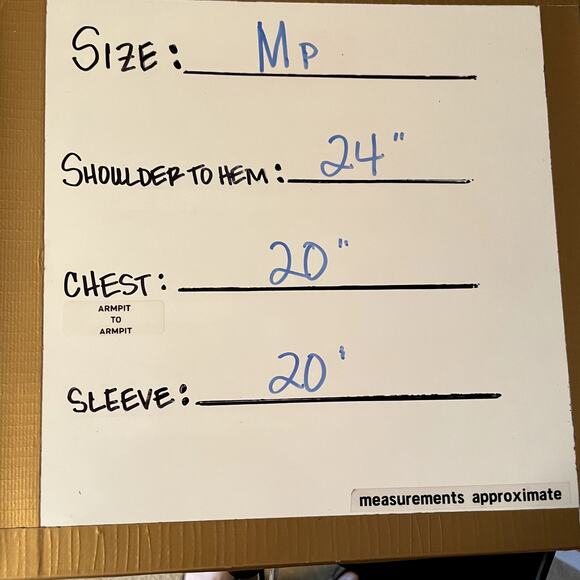 SIZE: MP
SHOULDER TO HEM: 24"
CHEST: 20"
ARMPIT
TO
ARMPIT
SLEEVE: 20'
measurements approximate